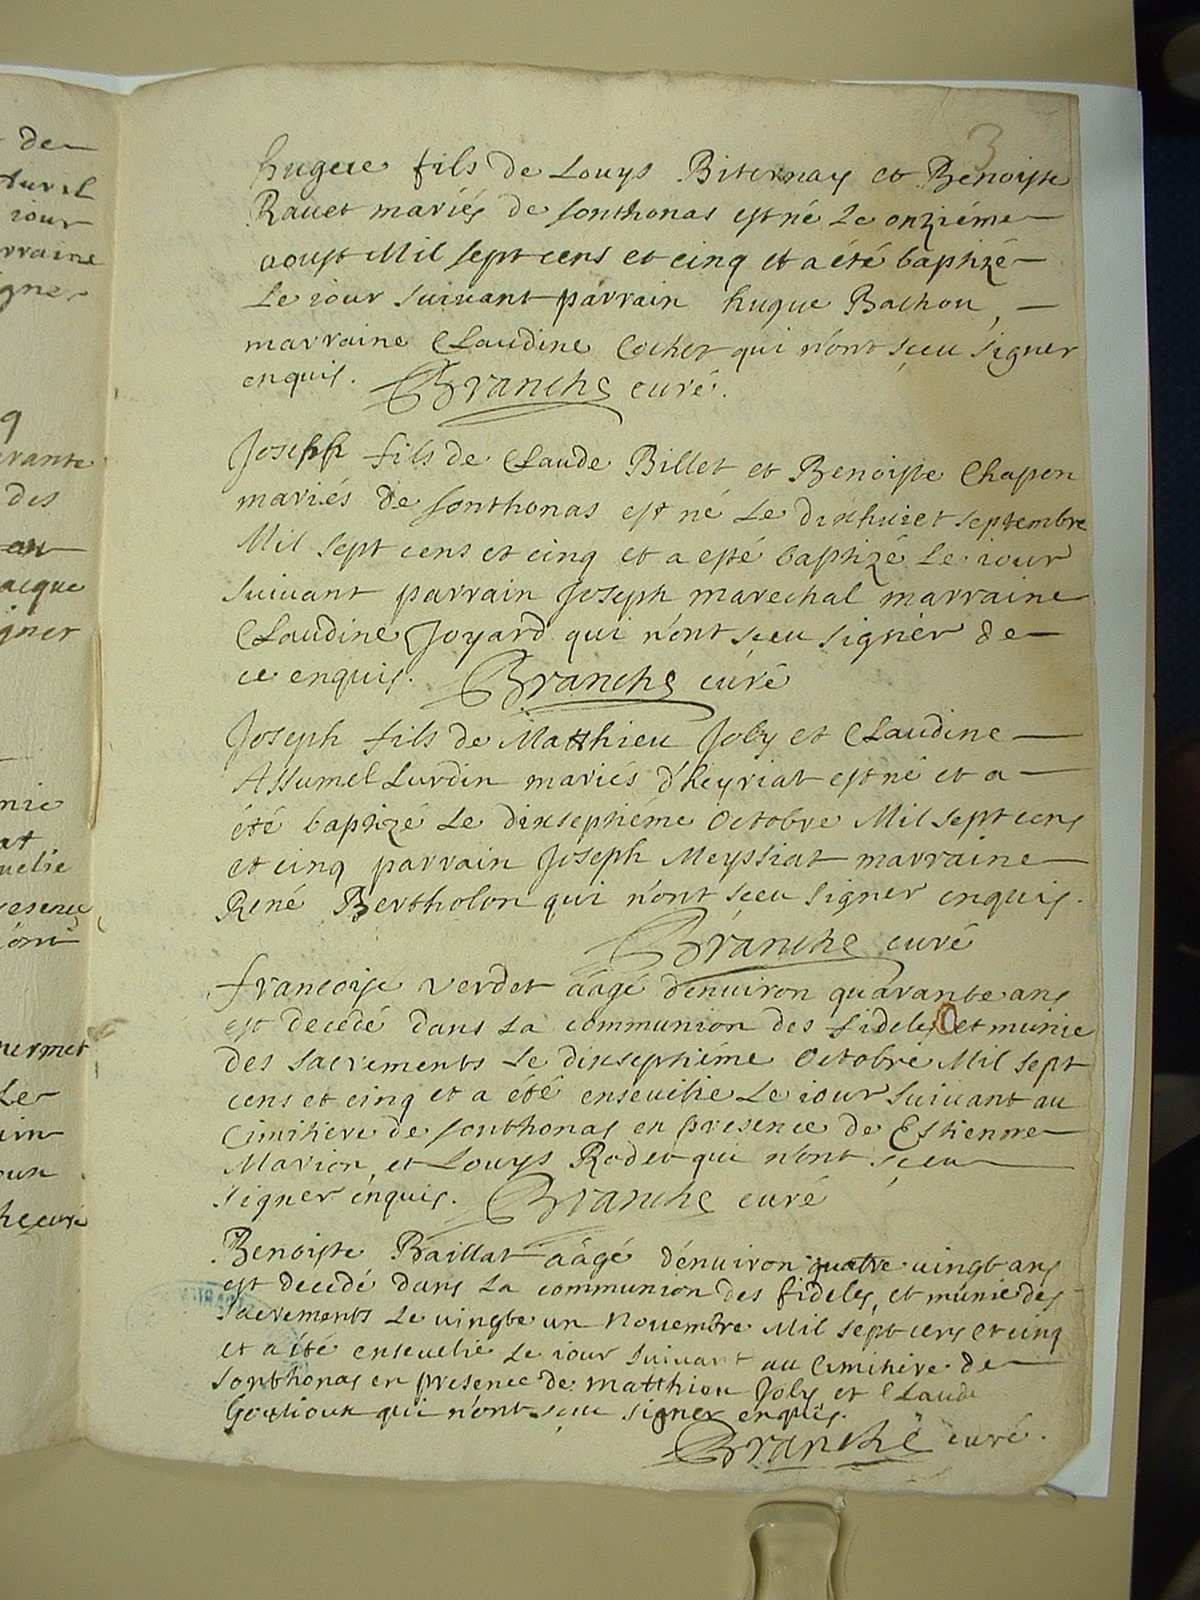 3
hugue fils de Louys Biternay et Benoiste
Ravet mariés de sonthonas est né le onziéme
aoust Mil sept cens et cinq et a été baptizé
Le iour suivant parrain hugue Bachou,
marraine Claudine Cochet qui n'ont sceu signer
enquis. Branche curé.
Joseph fils de Claude Billet et Benoiste Chapon
mariés de sonthonas est né Le dixhuiet septembre
Mil sept cens et cinq et a esté baptizé Le iour
suivant parrain Joseph marechal marraine
Claudine Joyard qui n'ont sceu signer de
ce enquis. Branche curé
Joseph fils de Matthieu Joly et Claudine
Assumel Lurdin mariés d'heyriat est né et a
été baptizé Le dixseptiéme Octobre Mil sept cens
et cinq parrain Joseph Meyssiat marraine
René Bertholon qui n'ont sceu signer enquis.
Branche curé
francoise verdet âàgé d'enuiron quarante ans
est decedé dans La communion des fideles et munie
des sacrements Le dixseptiéme Octobre Mil sept
cens et cinq et a été enseuelie Le iour suivant au
Cimitiere de sonthonas en presence de Estienne
Marion et Louys Rodet qui n'ont sceu
signer enquis. Branche curé
Benoiste Baillat âàgé d'enuiron quatre uingt ans
est decedé dans La communion des fideles, et munie des
sacrements Le uingte un Nouembre Mil sept cens et cinq
et a été enseuelie Le iour suivant au Cimitiere de
sonthonas en presence de matthieu Joly et Claude
qui n'ont sceu signer enquis.
Branche curé.